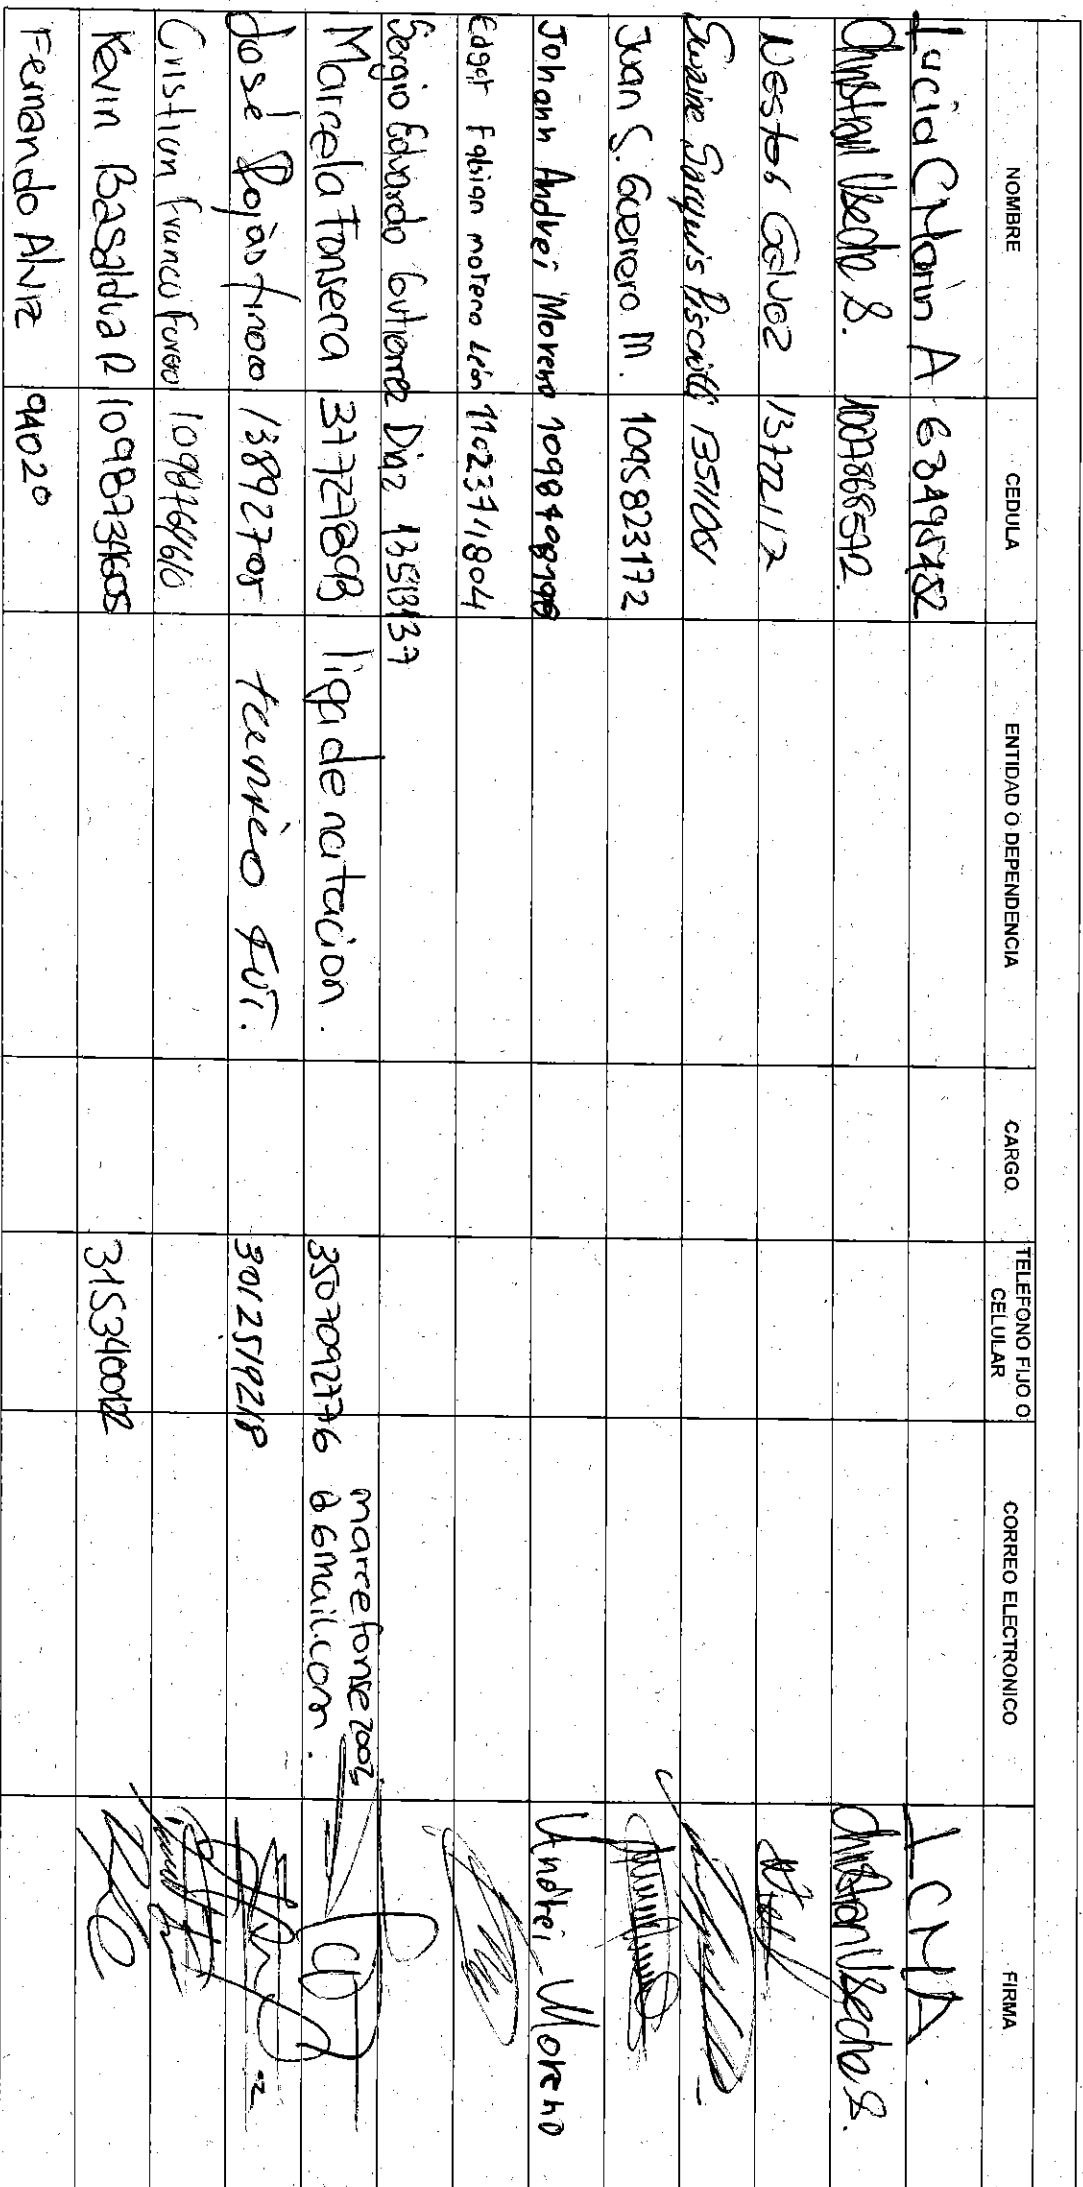 NOMBRE CEDULA ENTIDAD O DEPENDENCIA CARGO TELEFONO FIJO O CELULAR CORREO ELECTRONICO FIRMA
Lucia C Marin A 63495482 LCMA.
Christian Useche S. Christian Useche S.
Nestor Galvez 13722112
13511061
Juan S. Guerrero M. 1095823172
Johann Andrei Moreno Andrei Moreno
Edgar Fabian moreno León 1102371804
Sergio Eduardo Gutierrez Diaz 13513137
Marcela Fonseca 37727898 liga de natacion. 3507092776 marcefonse2003
@Gmail.com.
José Rojas 13892705 FUT. 3012519218
Cristian Franco Forero 1098769610
Kevin Basaldua R 1098734605 3153400122
Fernando Alviz 94020